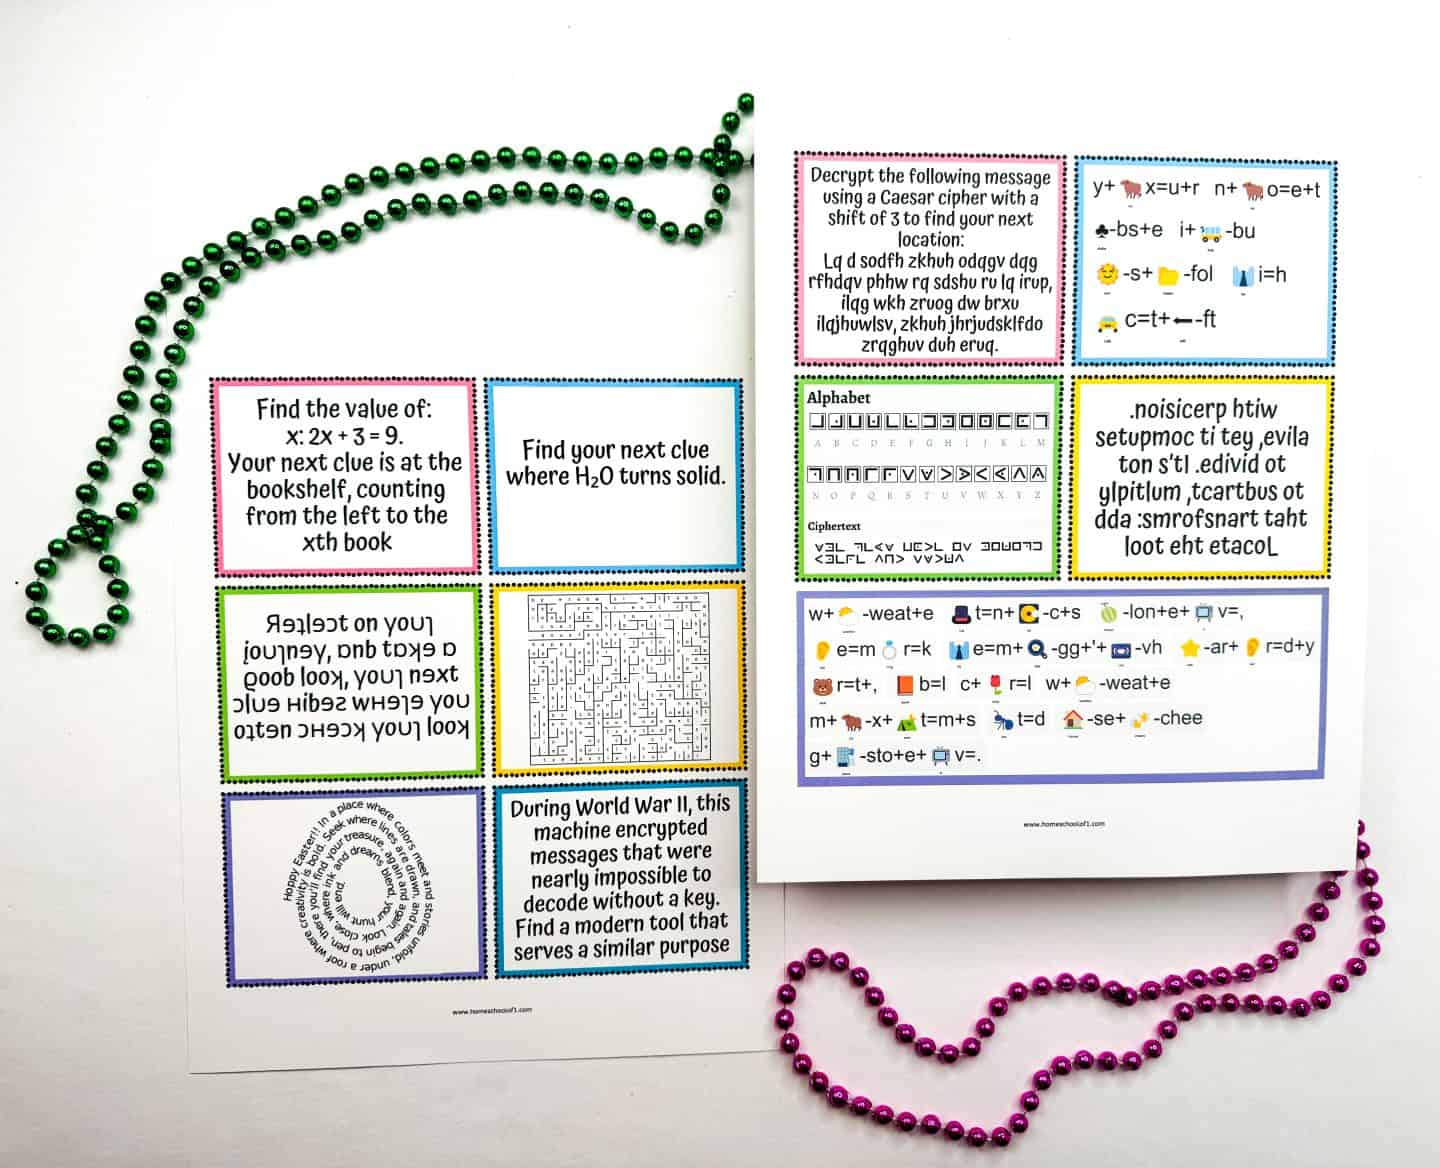 Find the value of:
x: 2x + 3 = 9.
Your next clue is at the
bookshelf, counting
from the left to the
xth book
Find your next clue
where H₂O turns solid.
Reflect on your
journey, and take a
good look, your next
clue hides where you
often check your look
Hoppy Easter!! In a place where colors meet and stories unfold, under a roof where creativity is bold. Seek where lines are drawn, and tales begin to pen, there you'll find your treasure, again and again. Look close, where ink and dreams blend, your hunt will end.
During World War II, this
machine encrypted
messages that were
nearly impossible to
decode without a key.
Find a modern tool that
serves a similar purpose
www.homeschoolof1.com
Decrypt the following message
using a Caesar cipher with a
shift of 3 to find your next
location:
Lq d sodfh zkhuh odqgv dqg
rfhdqv phhw rq sdshu ru lq irup,
ilqg wkh zruog dw brxu
ilqjhuwlsv, zkhuh jhrjudsklfdo
zrqghuv duh eruq.
y+ x=u+r n+ o=e+t
-bs+e i+ -bu
-s+ -fol i=h
c=t+ -ft
Alphabet
A B C D E F G H I J K L M
N O P Q R S T U V W X Y Z
Ciphertext
.noisicerp htiw
setupmoc ti tey ,evila
ton s'tI .edivid ot
ylpitlum ,tcartbus ot
dda :smrofsnart taht
loot eht etacoL
w+ -weat+e t=n+ -c+s -lon+e+ v=,
e=m r=k e=m+ -gg+'+ -vh -ar+ r=d+y
r=t+, b=l c+ r=l w+ -weat+e
m+ -x+ t=m+s t=d -se+ -chee
g+ -sto+e+ v=.
www.homeschoolof1.com